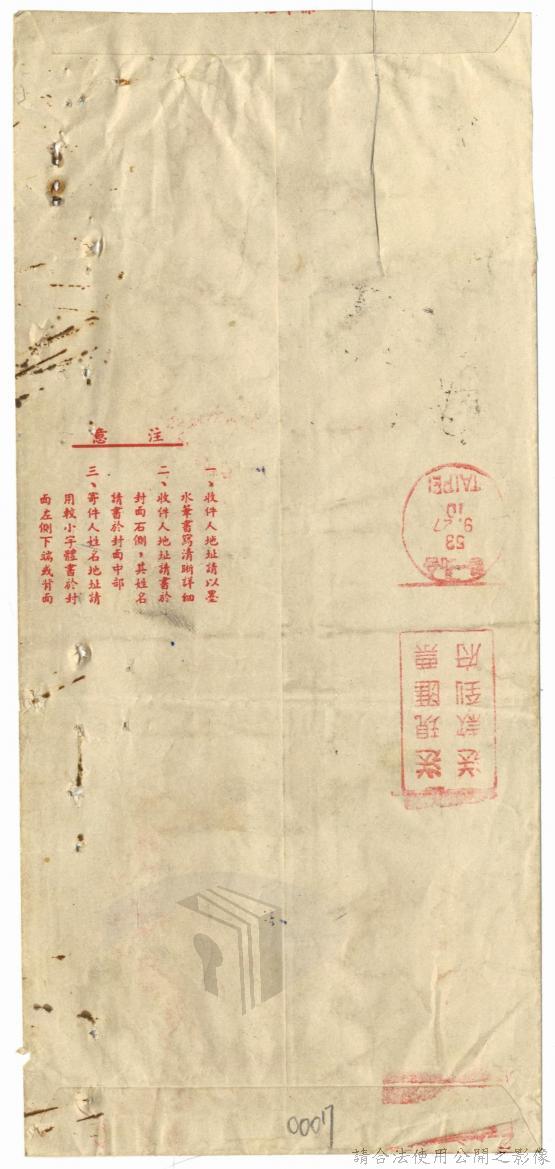 注意
一、收件人地址請以墨
水筆書寫清晰詳細
二、收件人地址請書於
封面右側，其姓名
請書於封面中部
三、寄件人姓名地址請
用較小字體書於封
面左側下端或背面
TAIPEI
10
9.27
53
送現匯票
送款到府
0007
請合法使用公開之影像